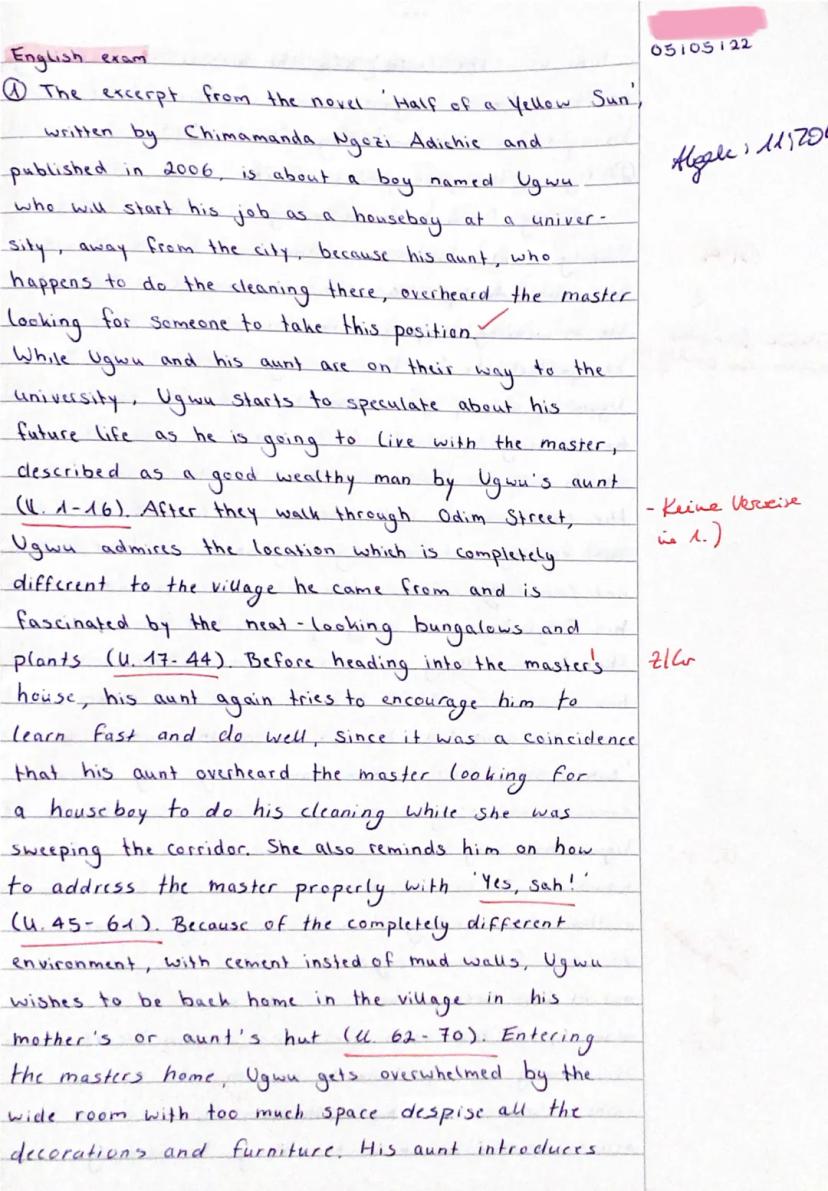 05/05/22
English exam
① The excerpt from the novel 'Half of a Yellow Sun',
written by Chimamanda Ngozi Adichie and
published in 2006, is about a boy named Ugwu
who will start his job as a houseboy at a univer-
sity, away from the city, because his aunt, who
happens to do the cleaning there, overheard the master
looking for someone to take this position. ✓
While Ugwu and his aunt are on their way to the
university, Ugwu starts to speculate about his
future life as he is going to live with the master,
described as a good wealthy man by Ugwu's aunt
(ll. 1-16). After they walk through Odim Street,
- Keine Verweise
in 1.)
Ugwu admires the location which is completely
different to the village he came from and is
fascinated by the neat-looking bungalows and
plants (ll. 17-44). Before heading into the master's
house, his aunt again tries to encourage him to
learn fast and do well, since it was a coincidence
that his aunt overheard the master looking for
a houseboy to do his cleaning while she was
sweeping the corridor. She also reminds him on how
to address the master properly with 'Yes, sah!'
(ll. 45-61). Because of the completely different
environment, with cement insted of mud walls, Ugwu
wishes to be back home in the village in his
mother's or aunt's hut (ll. 62-70). Entering
the masters home, Ugwu gets overwhelmed by the
wide room with too much space despise all the
decorations and furniture. His aunt introduces